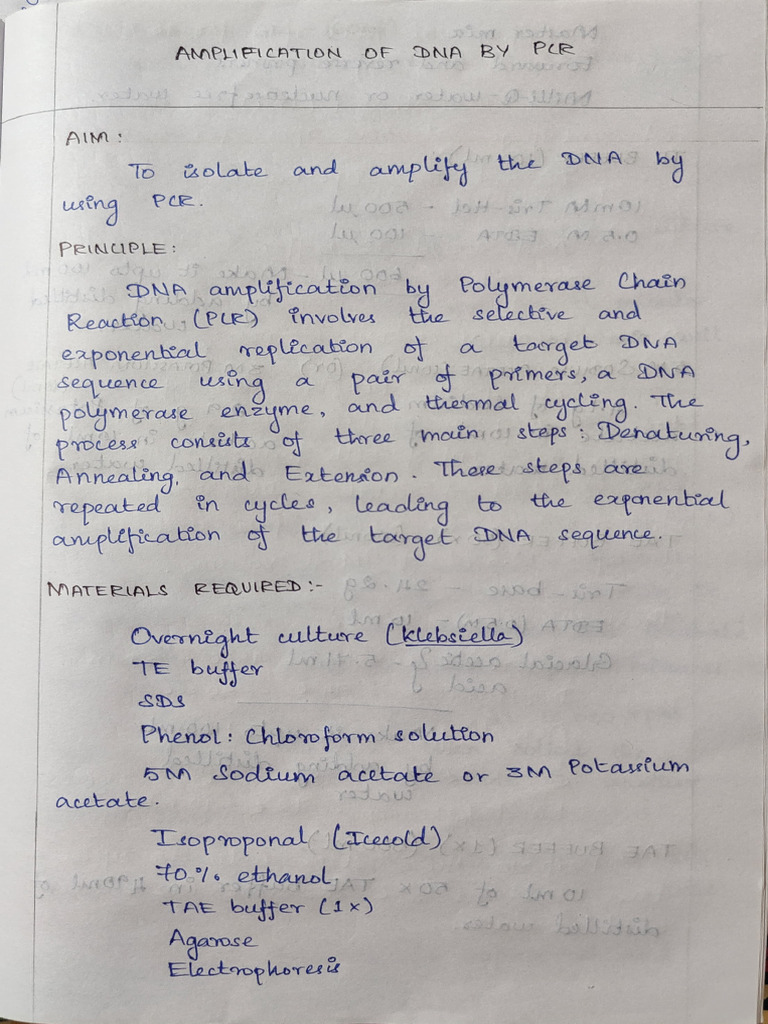 AMPLIFICATION OF DNA BY PCR
AIM:
To isolate and amplify the DNA by
using PCR.
PRINCIPLE:
DNA amplification by Polymerase Chain
Reaction (PCR) involves the selective and
exponential replication of a target DNA
sequence using a pair of primers, a DNA
polymerase enzyme, and thermal cycling. The
process consists of three main steps: Denaturing,
Annealing, and Extension. These steps are
repeated in cycles, leading to the exponential
amplification of the target DNA sequence.
MATERIALS REQUIRED:-
Overnight culture (Klebsiella)
TE buffer
SDS
Phenol: Chloroform solution
5M Sodium acetate or 3M Potassium
acetate.
Isoproponal (Icecold)
70% ethanol
TAE buffer (1x)
Agarose
Electrophoresis